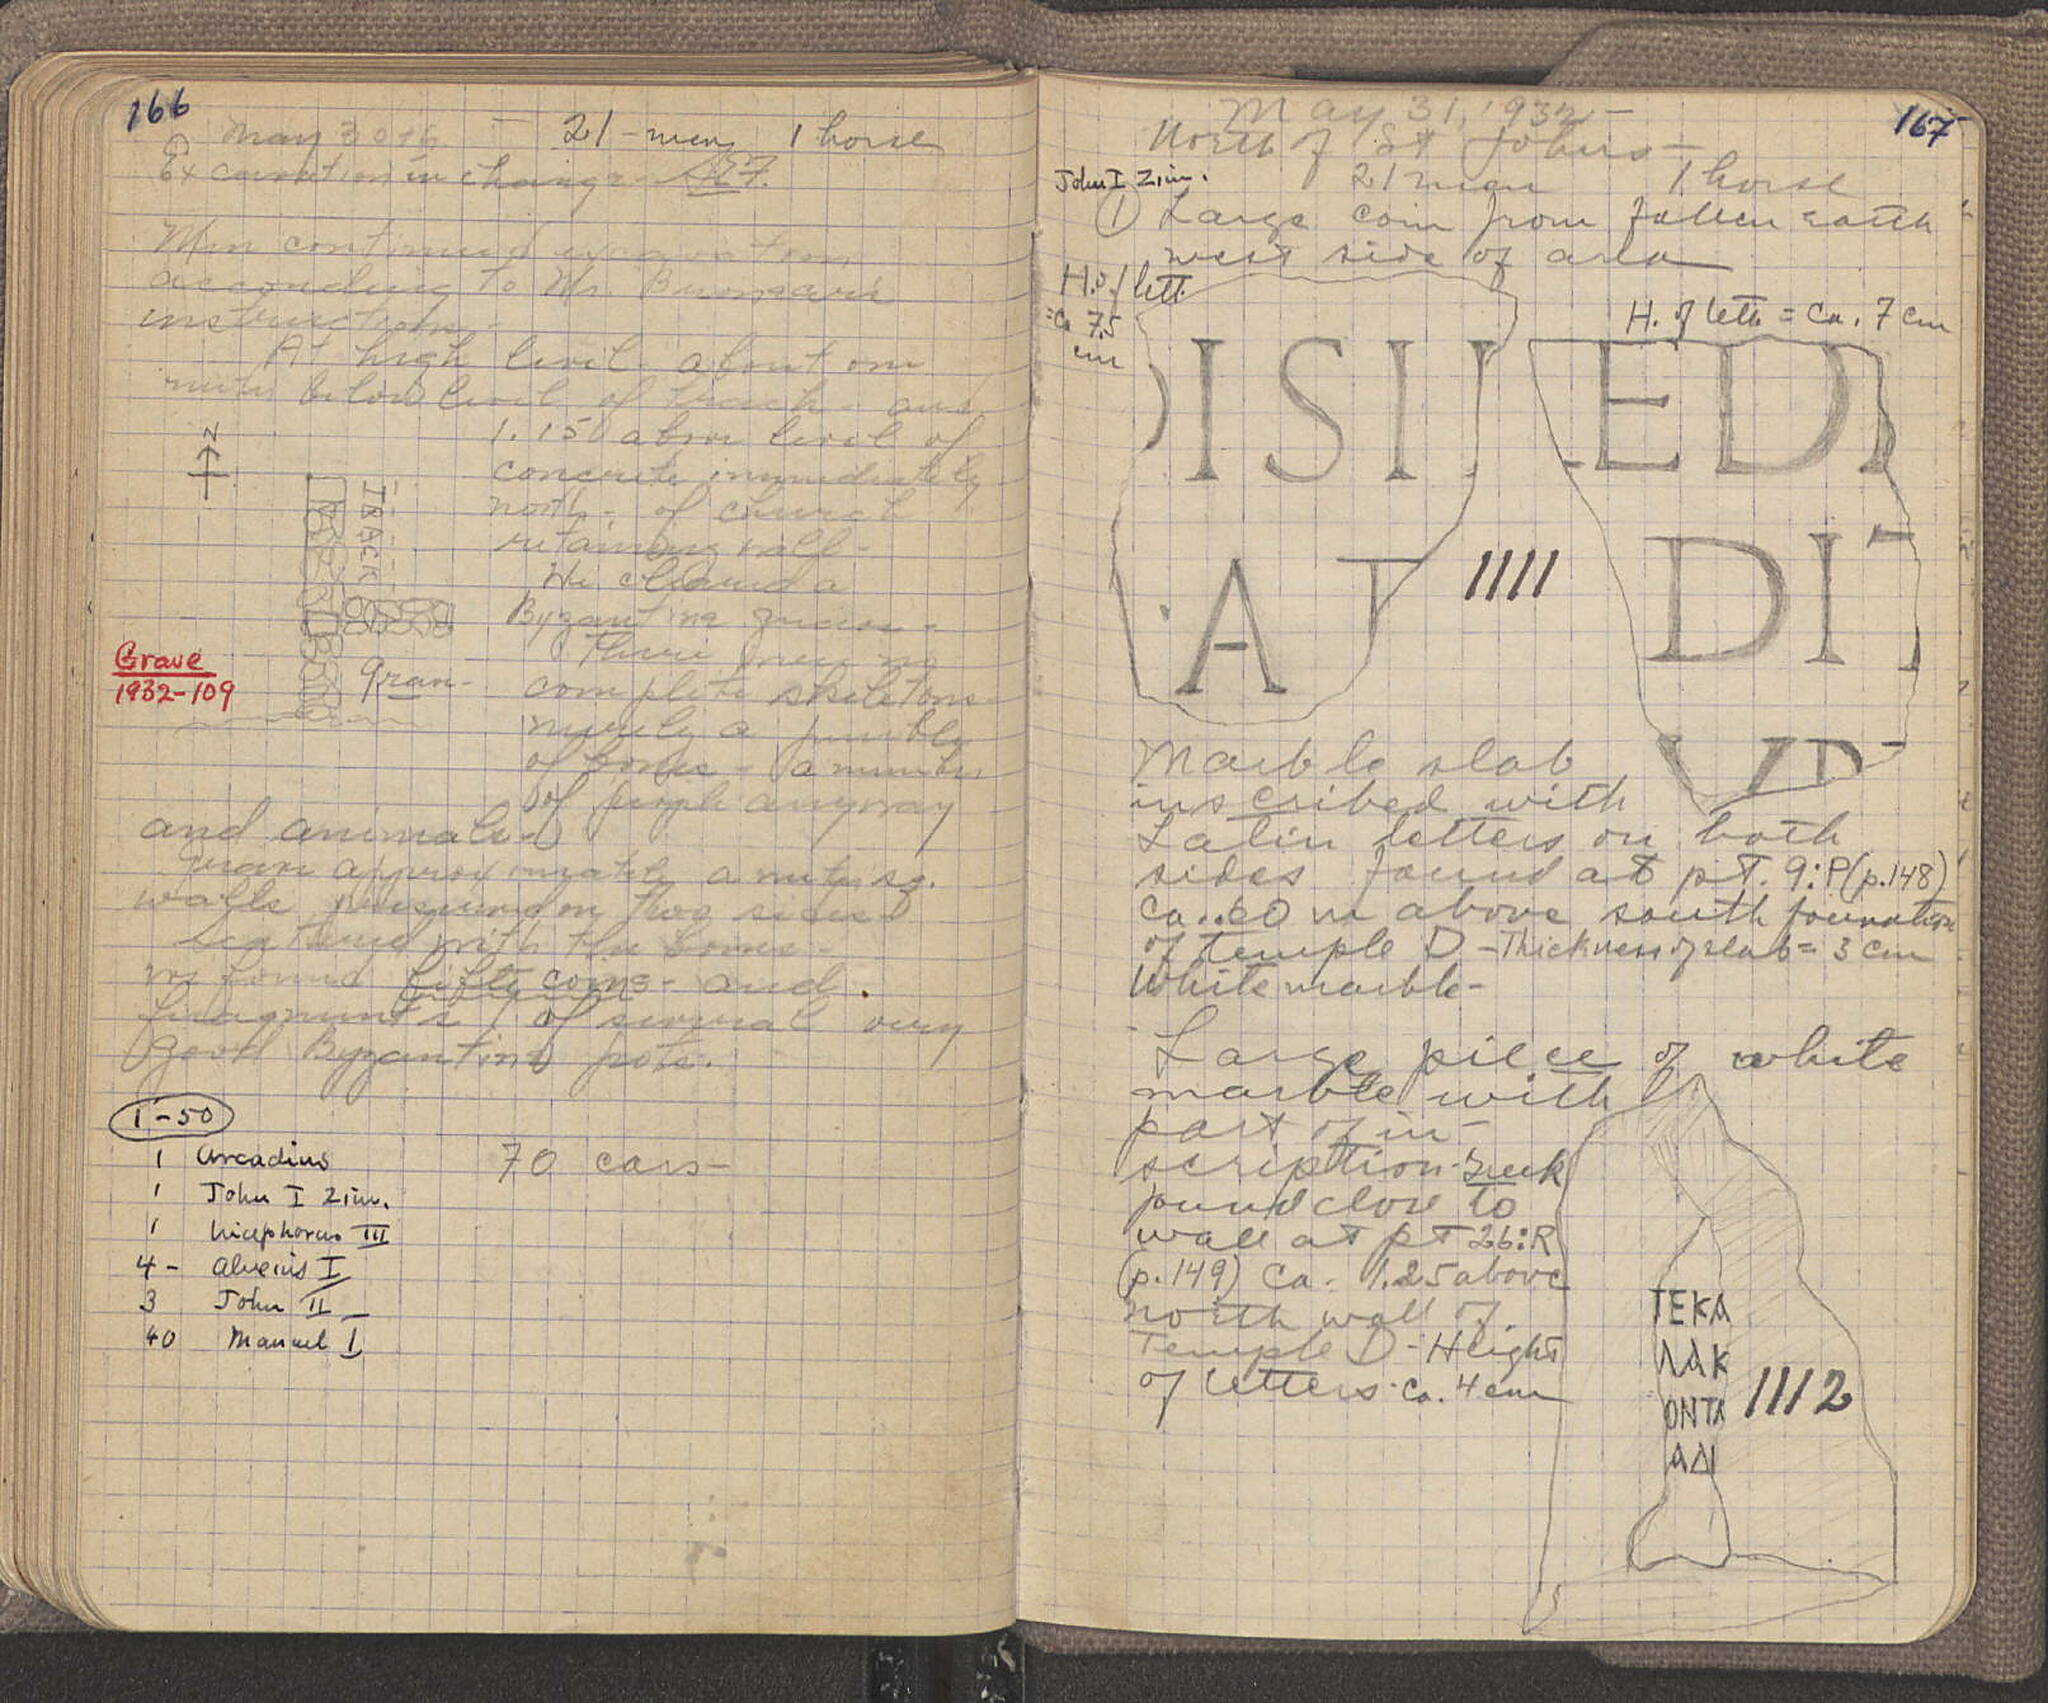 166
May 30th — 21 - men 1 horse
Excavation in charge
Men continued excavations
according to Mr.
instructions.
At high level about one
meter below level of track - and
1.150 above level of
concrete immediately
north - of church
retaining wall -
We cleaned a
Byzantine grave -
There were no
complete skeletons
merely a jumble
of bones - a number
of people anyway
and animals -
N
TRACK
Grave
1932-109
Grave approximately a meter sq.
walls preserved on two sides
Scattered with the bones -
we found fifty coins - and
fragments of several very
good Byzantine pots.
1-50
1 Arcadius
70 cars -
1 John I Zim.
1 Nicephorus III
4 - Alexius I
3 John II
40 Manuel I
167
May 31, 1932 -
North of St Johns -
John I Zim. 21 men 1 horse
1 Large coin from fallen earth
west side of area
H. of lett.
= ca 7.5
cm
H. of lett. = ca. 7 cm
ISI
AT
1111
EDI
DIT
VP
Marble slab
inscribed with
Latin letters on both
sides found at pt. 9:P (p.148)
ca. .60 m above south foundation
of temple D - Thickness of slab = 3 cm
White marble -
Large piece of white
marble with
part of in-
scription - Greek
found close to
wall at pt 26:R
(p.149) ca. 1.25 above
north wall of
Temple D - Height
of letters - ca. 4 cm
ΤΕΚΑ
ΛΑΚ
ΟΝΤΑ
ΑΔΙ
1112